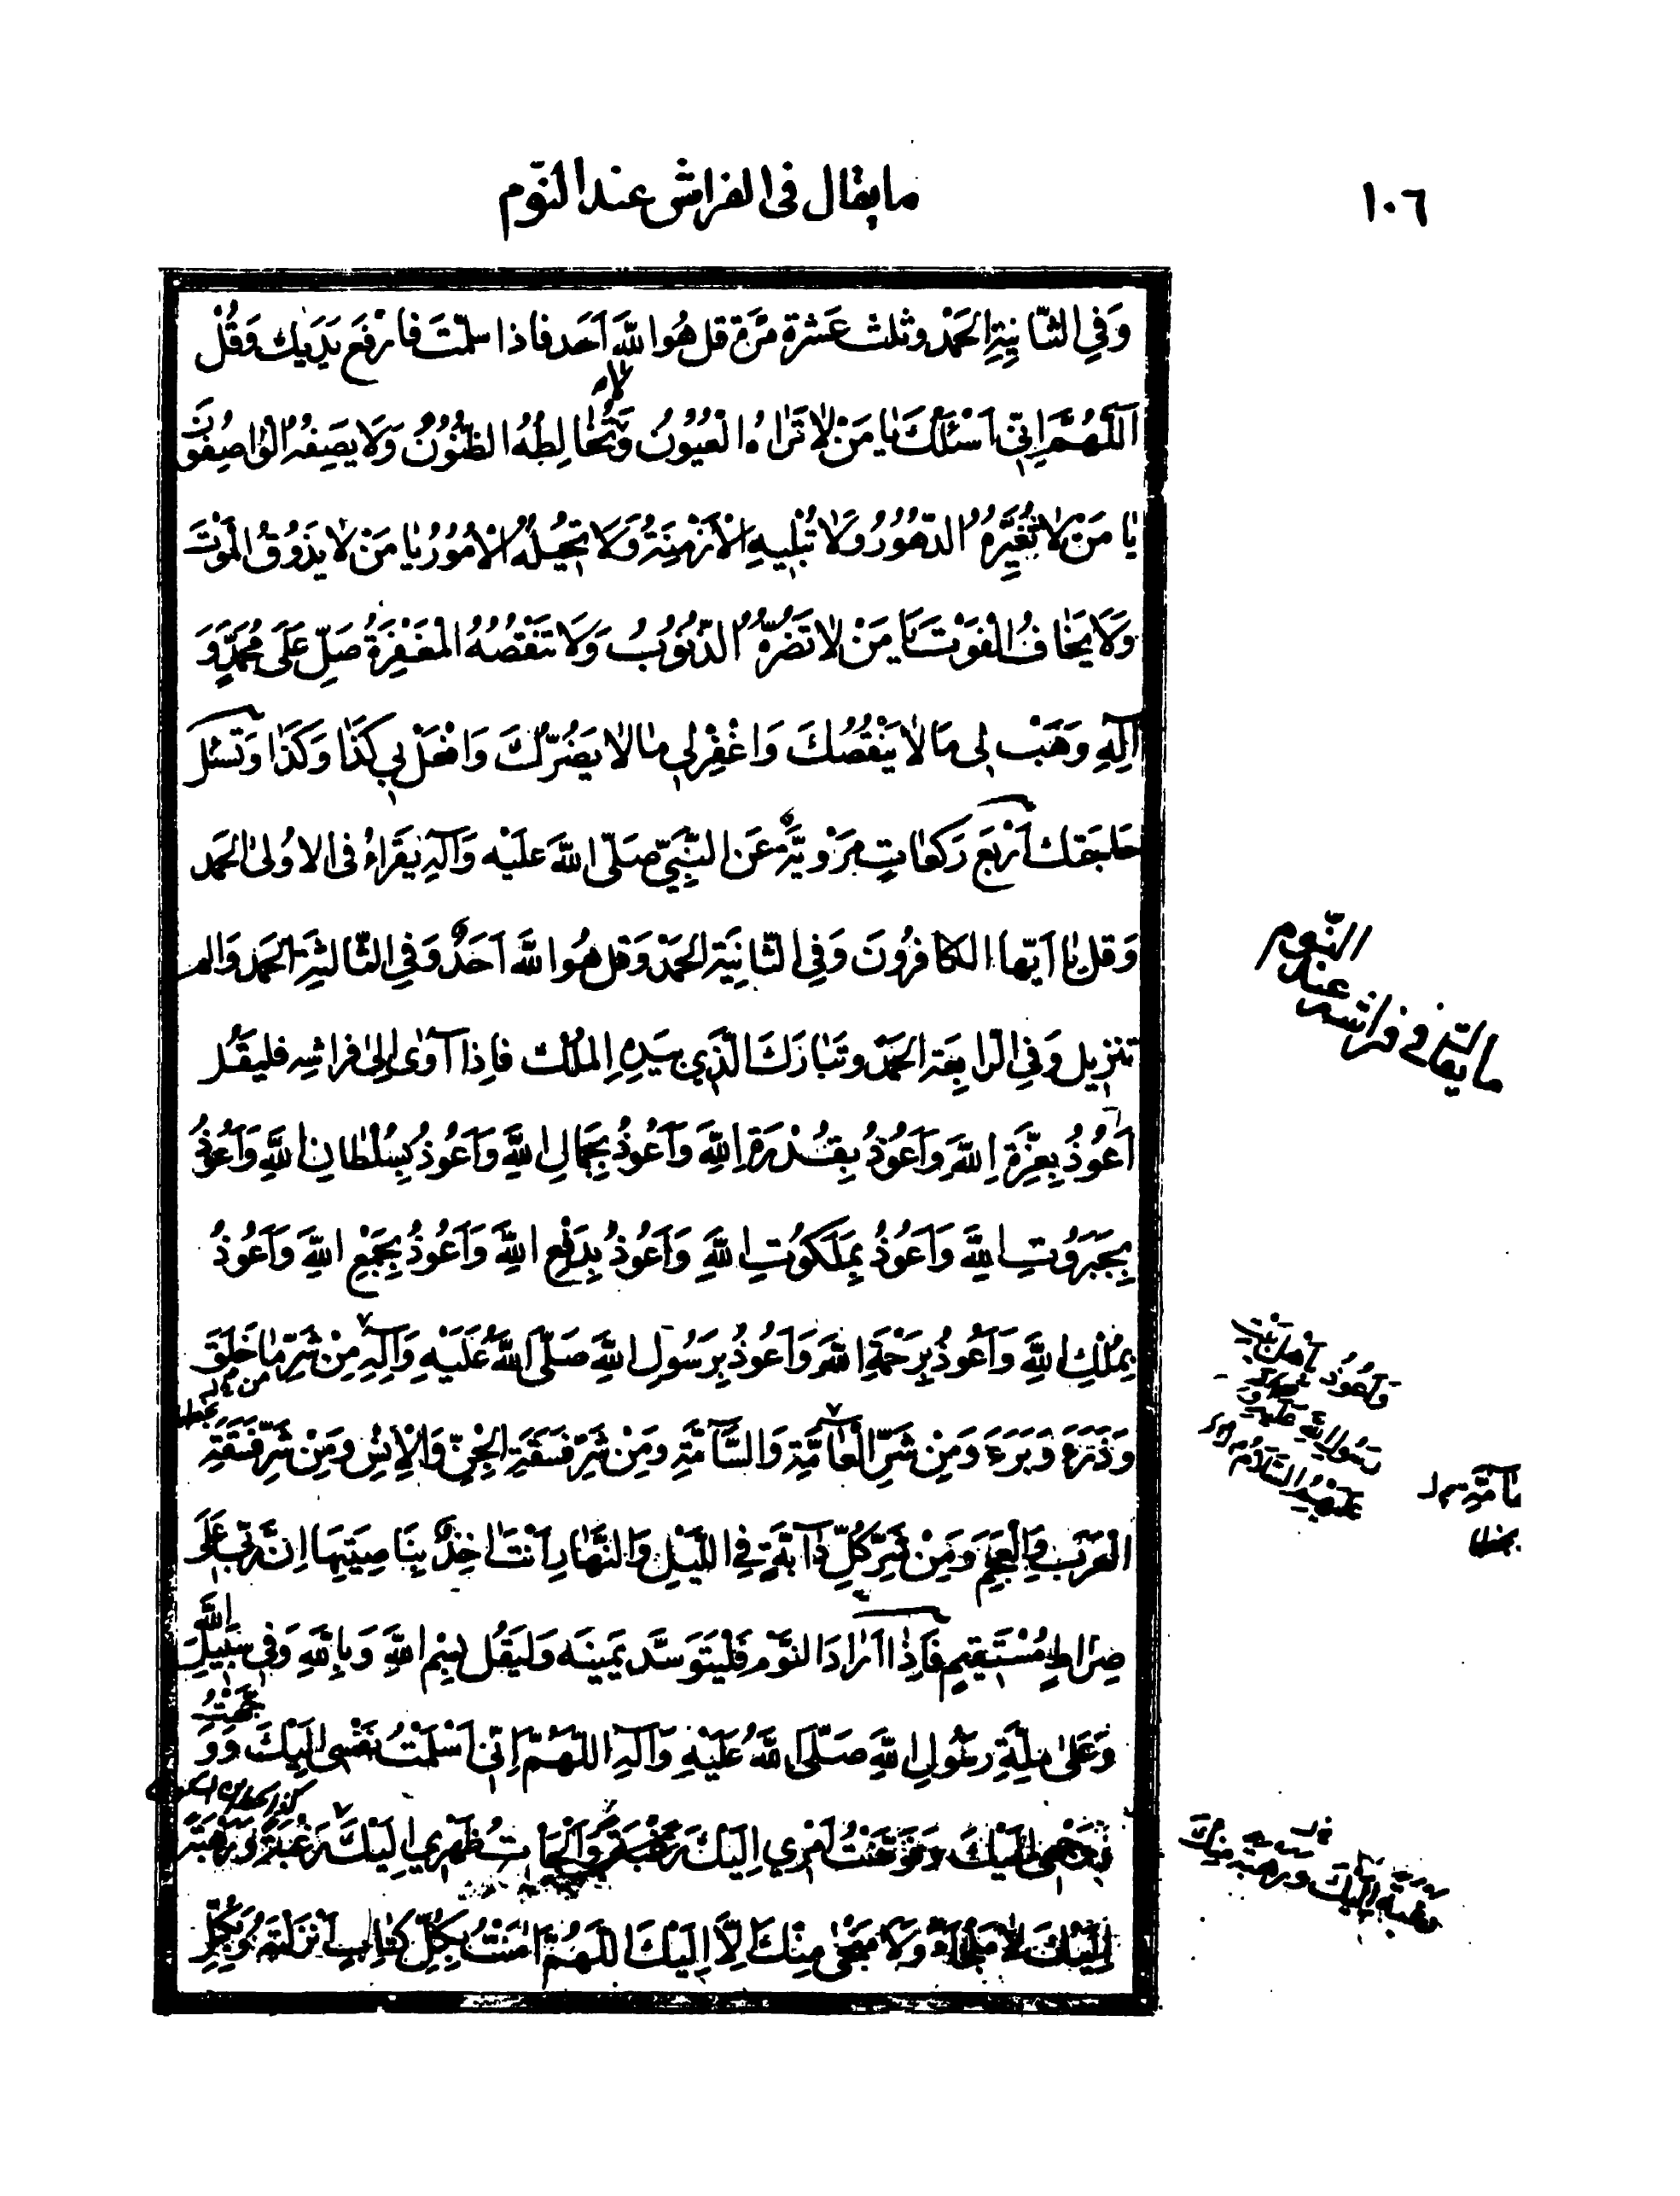 ١٠٦
ما يقال فى الفراش عند النّوم
وَفِي الثّانِيَةِ الحَمْدُ وثلث عَشرة مَرّة قل هُوَ اللّهُ اَحَد فاذا سلّمتَ فارْفَع يَدَيك وَقُلْ
لا
اَللّهُمَّ اِنّي اَسْئَلُكَ يٰا مَنْ لٰا تَرٰاهُ الْعُيُونُ وَتُخٰالِطُهُ الظُّنُونُ وَلَا يَصِفُهُ الْوٰاصِفُونَ
يٰا مَنْ لٰا تُغَيِّرُهُ الدُّهُورُ وَلٰا تُبْلِيهِ الْاَزْمِنَةُ وَلَا تُحِيلُهُ الْاُمُورُ يٰا مَنْ لٰا يَذُوقُ الْمَوْتَ
وَلَا يَخٰافُ الْفَوْتَ يٰا مَنْ لٰا تَضُرُّهُ الذُّنُوبُ وَلَا تَنْقُصُهُ الْمَغْفِرَةُ صَلِّ عَلَى مُحَمَّدٍ وَ
اٰلِهِ وَهَبْ لِى مَا لٰا يَنْقُصُكَ وَاغْفِرْ لِي مٰا لٰا يَضُرُّكَ وَافْعَلْ بِي كَذٰا وَكَذٰا وَتَسئل
حَاجَتَك اَرْبَع رَكَعٰاتٍ مَرْوِيَّة عَن النَّبِيّ صَلّى اللّهُ عَلَيْهِ وَآلِهِ يَقرَاءُ فى الاُولىٰ الحَمد
وَقل يٰا اَيّها الكافِرُونَ وَفِي الثّانِيَة الحَمْدَ وَقل هُوَ اللّهُ اَحَدٌ وَفِي الثّالِثَةِ الحَمدَ وَالم
تنزيل وَفي الرّابِعَة الحَمْدَ وتَبٰارَكَ الّذِي بِيَدِهِ المُلْك فاِذا آوىٰ اِلىٰ فراشِه فليقُل
اَعُوذُ بِعِزَّةِ اللّهِ وَاَعُوذُ بِقُدْرَةِ اللّهِ وَاَعُوذُ بِجَمَالِ اللّهِ وَاَعُوذُ بِسُلْطٰانِ اللّهِ وَاَعُوذُ
بِجَبَرُوتِ اللّهِ وَاَعُوذُ بِمَلَكُوتِ اللّهِ وَاَعُوذُ بِدَفْعِ اللّهِ وَاَعُوذُ بِجَمْعِ اللّهِ وَاَعُوذُ
بِمُلْكِ اللّهِ وَاَعُوذُ بِرَحْمَةِ اللّهِ وَاَعُوذُ بِرَسُولِ اللّهِ صَلَّى اللّهُ عَلَيْهِ وَآلِهِ مِنْ شَرِّ مٰا خَلَقَ
وَذَرَءَ وَبَرَءَ وَمِن شَرِّ الْعٰامَّةِ وَالسَّآمَّةِ وَمِنْ شَرِّ فَسَقَةِ الْجِنِّ وَالْاِنْسِ وَمِنْ شَرِّ فَسَقَةِ
الْعَرَبِ وَالْعَجَمِ وَمِنْ شَرِّ كُلِّ دٰآبَّةٍ فِي اللَّيْلِ وَالنَّهٰارِ اَنْتَ اٰخِذٌ بِنَاصِيَتِهَا اِنَّ رَبِّي عَلَى
صِرٰاطٍ مُسْتَقِيمٍ فَاِذٰا اَرٰادَ النَّوْم فَلْيَتَوَسَّد يَمينَه وَليَقُل بِسْمِ اللّهِ وَبِاللّهِ وَفِي سَبِيلِ
اللّهِ
وَعَلىٰ مِلَّةِ رَسُولِ اللّهِ صَلَّى اللّهُ عَلَيْهِ وَآلِهِ اَللّهُمَّ اِنّي اَسْلَمْتُ نَفْسِى اِلَيْكَ وَوَ
جَّهْتُ
وَجْهِي اِلَيْكَ وَفَوَّضْتُ اَمْرِي اِلَيْكَ وَاَلْجَأْتُ ظَهْرِي اِلَيْكَ رَغْبَةً وَرَهْبَةً
اِلَيْكَ لٰا مَلْجَأَ وَلَا مَنْجىٰ مِنْكَ اِلَّا اِلَيْكَ اَللّهُمَّ اٰمَنْتُ بِكُلِّ كِتٰابٍ اَنْزَلْتَهُ وَبِكُلِّ
ما يقال فى فراشه
عند
النّوم
وَاَعُوذُ بِاَهْلِ بَيْتِ
رَسُولِ اللّهِ
عَلَيْهِمُ السَّلَامُ
رغبة اليك ورهبة منك